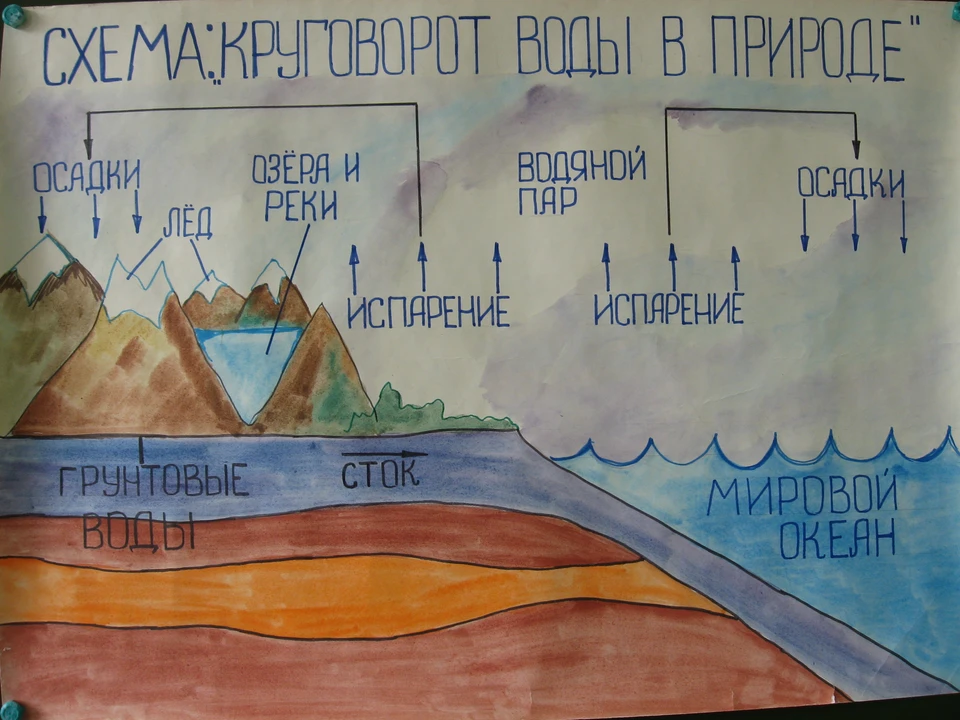 СХЕМА: „КРУГОВОРОТ ВОДЫ В ПРИРОДЕ"
ОСАДКИ
ЛЁД
ОЗЁРА И
РЕКИ
ВОДЯНОЙ
ПАР
ОСАДКИ
ИСПАРЕНИЕ
ИСПАРЕНИЕ
ГРУНТОВЫЕ
ВОДЫ
СТОК
МИРОВОЙ
ОКЕАН